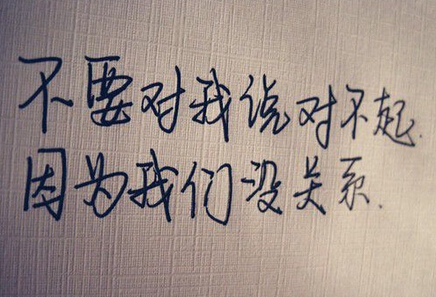 不要对我说对不起.
因为我们没关系.